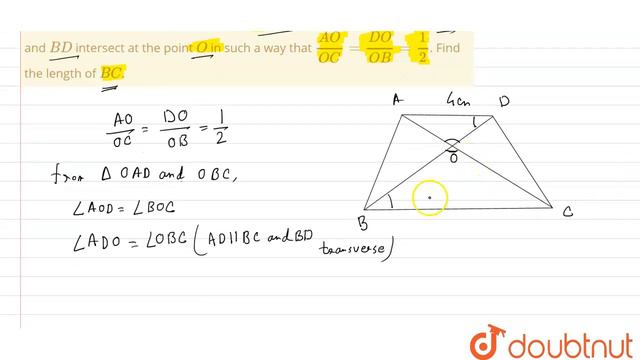 and BD intersect at the point O in such a way that AO/OC = DO/OB = 1/2. Find
the length of BC.
AO/OC = DO/OB = 1/2
from Δ OAD and OBC,
∠AOD = ∠BOC
∠ADO = ∠OBC (AD||BC and BD transverse)
A 4cm D
O
B C
doubtnut